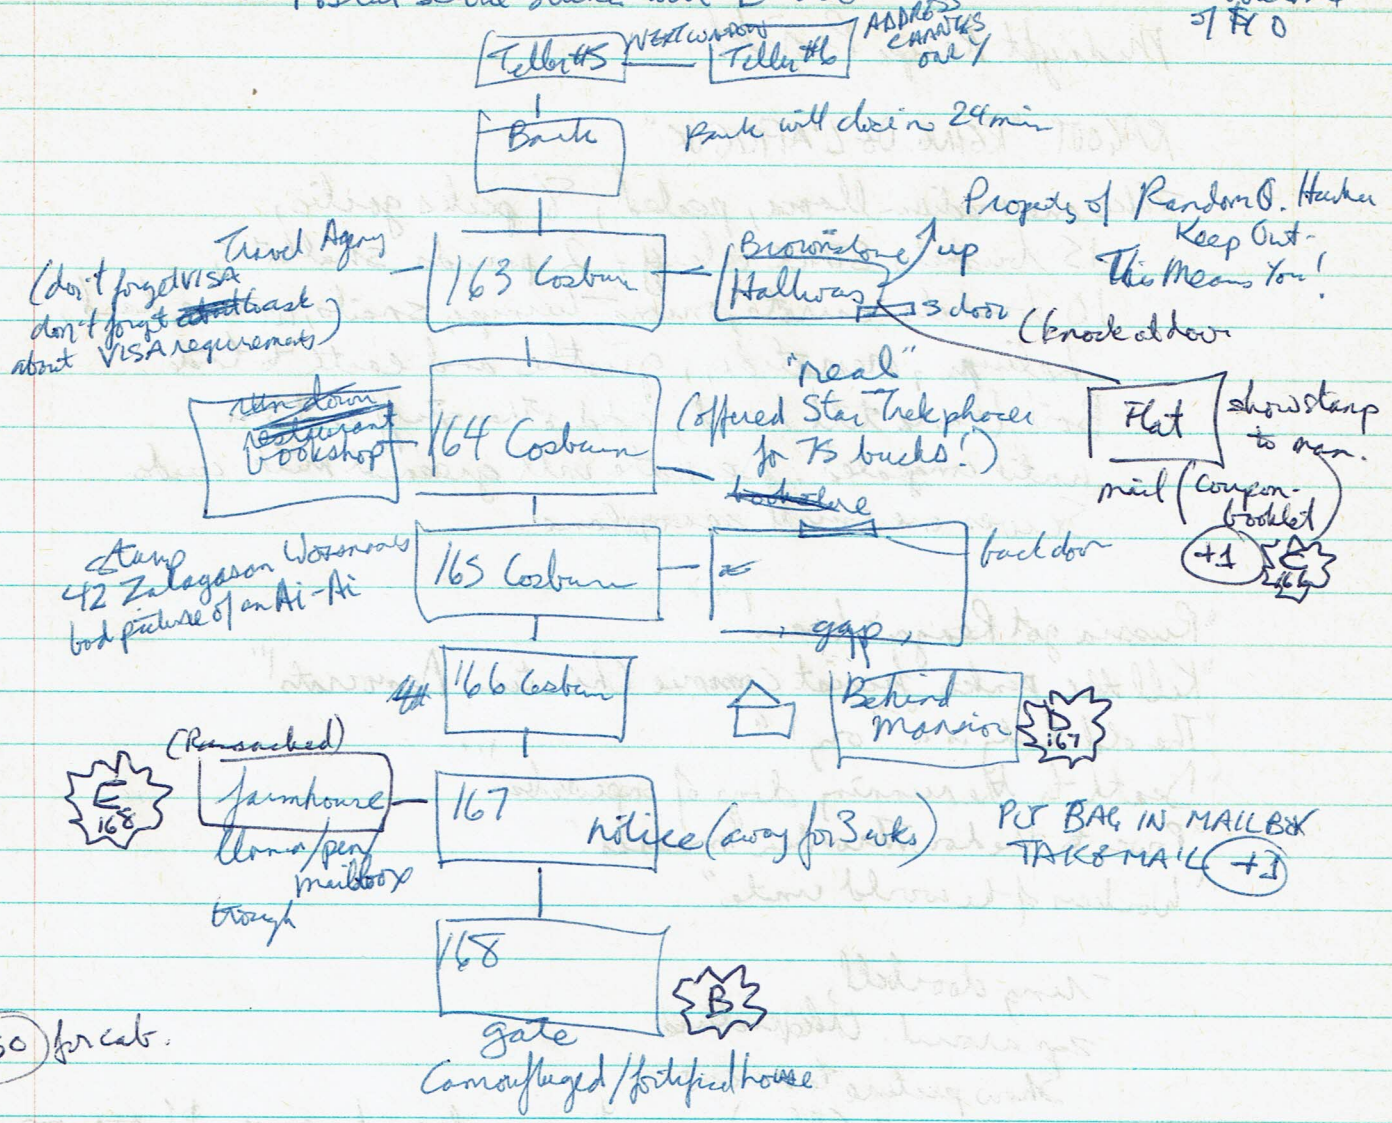 of #10
Teller #5
NEXT WINDOW
Teller #6
ADDRESS
CHANGES
only
Bank
Bank will close in 24 min
Travel Agency
(don't forget VISA
don't forget
about VISA requirements)
163 Cosburn
Brownstone
Hallway
up
3 door
Property of Random Q. Hacker
Keep Out-
This Means You!
(knock at door
run down
restaurant
bookshop
164 Cosburn
"real"
(offered Star Trek phaser
for 75 bucks!)
Flat
show stamp
to man.
mail (coupon-
booklet)
+1
stamp
42 Zalagasan Wossnames
bad picture of an Ai-Ai
165 Cosburn
gap
back door
166 Cosburn
Behind
Mansion
D
167
(Ransacked)
C
168
farmhouse
llama/pen/
mailbox
trough
167
notice (away for 3 wks)
PUT BAG IN MAILBOX
TAKE MAIL +1
168
B
gate
Camouflaged/fortified house
for cab.